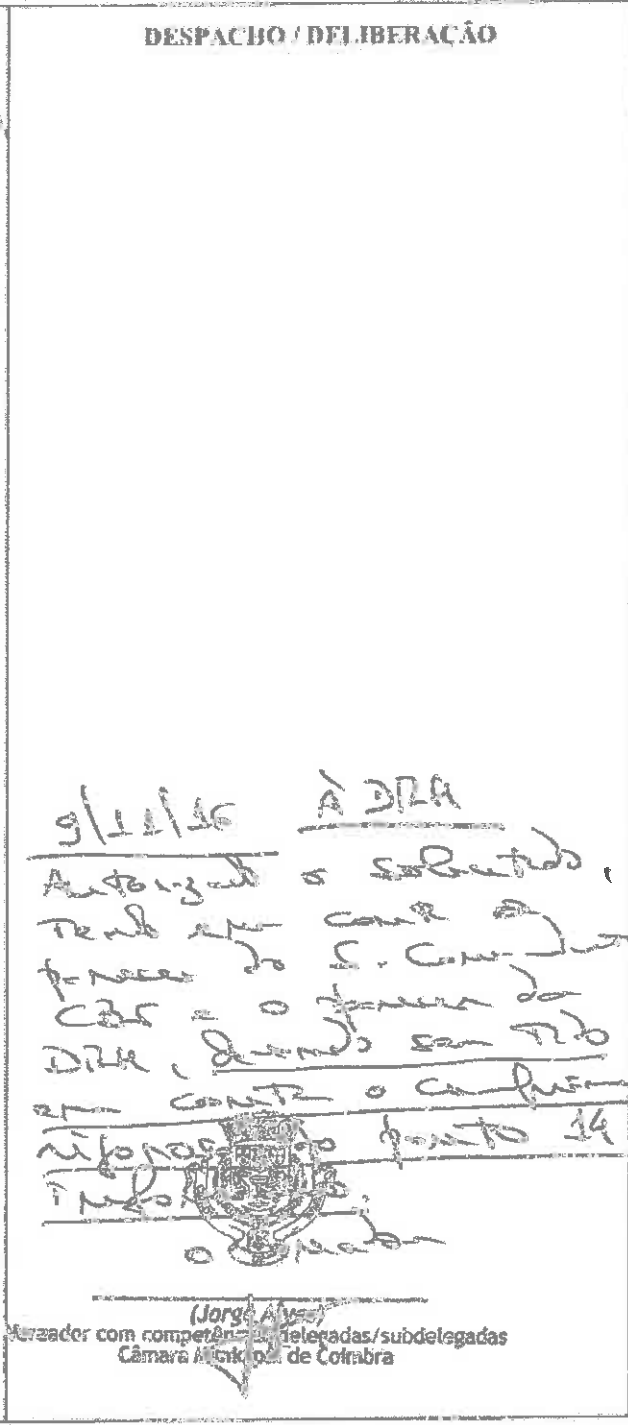 DESPACHO / DELIBERAÇÃO
9/11/16 À DRH
Autorizado o solicitado,
Tendo em conta o
parecer do S. Comandante
CBS e o parecer da
DRH, devendo ser tido
em conta o
rigoroso do ponto 14
o
(Jorge Alves)
Vereador com competências delegadas/subdelegadas
Câmara Municipal de Coimbra